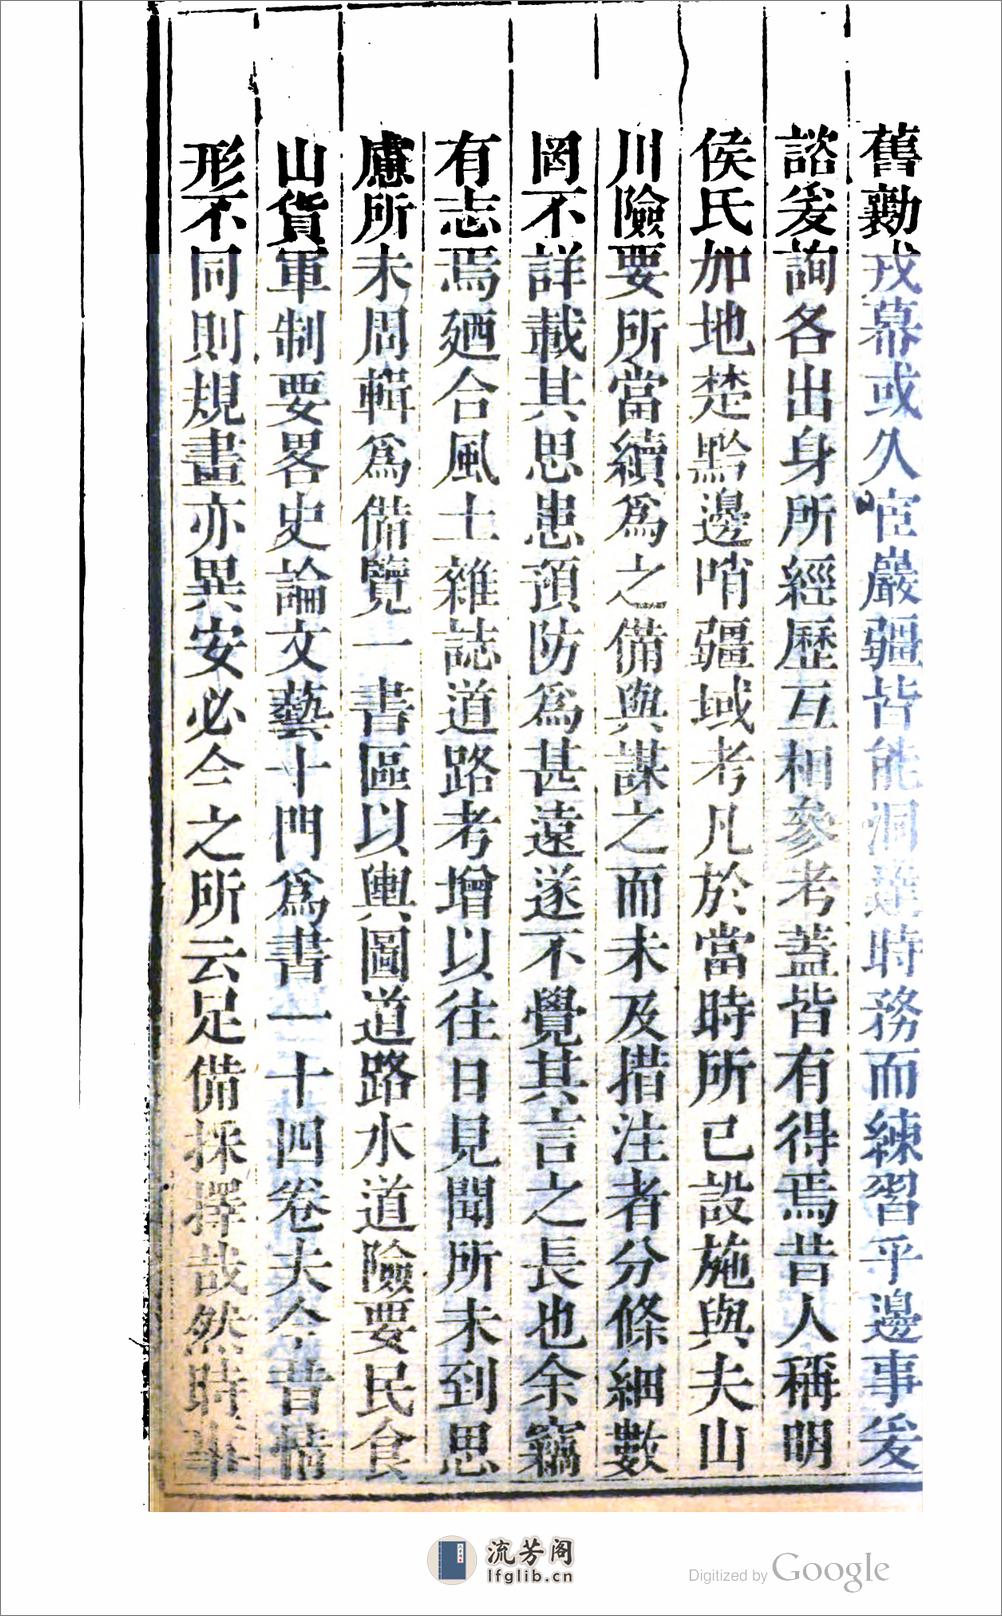 舊勷戎幕或久宦嚴疆皆能洞達時務而練習乎邊事爰
諮爰詢各出身所經歷互相參考蓋皆有得焉昔人稱明
侯氏加地楚黔邊哨疆域考凡於當時所已設施與夫山
川險要所當續爲之備與謀之而未及措注者分條細數
罔不詳載其思患預防爲甚遠遂不覺其言之長也余竊
有志焉廼合風土雜誌道路考增以往日見聞所未到思
慮所未周輯爲備覽一書區以輿圖道路水道險要民食
山貨軍制要畧史論文藝十門爲書一十四卷夫今昔情
形不同則規畫亦異安必今之所云足備採擇哉然時事
流芳阁
lfglib.cn
Digitized by Google